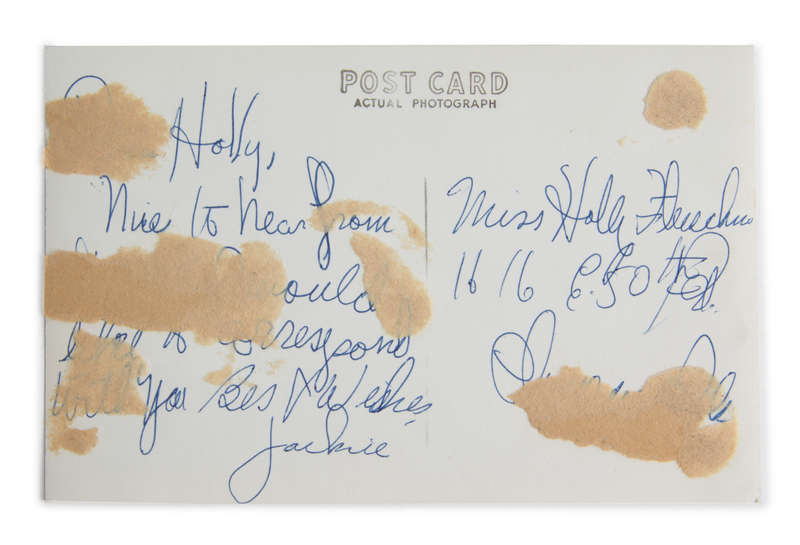 POST CARD
ACTUAL PHOTOGRAPH
Holly,
Nice to hear from
would
like to correspond
with you Best Wishes,
Jackie
Miss Holly
1616 E. 50th Pl.